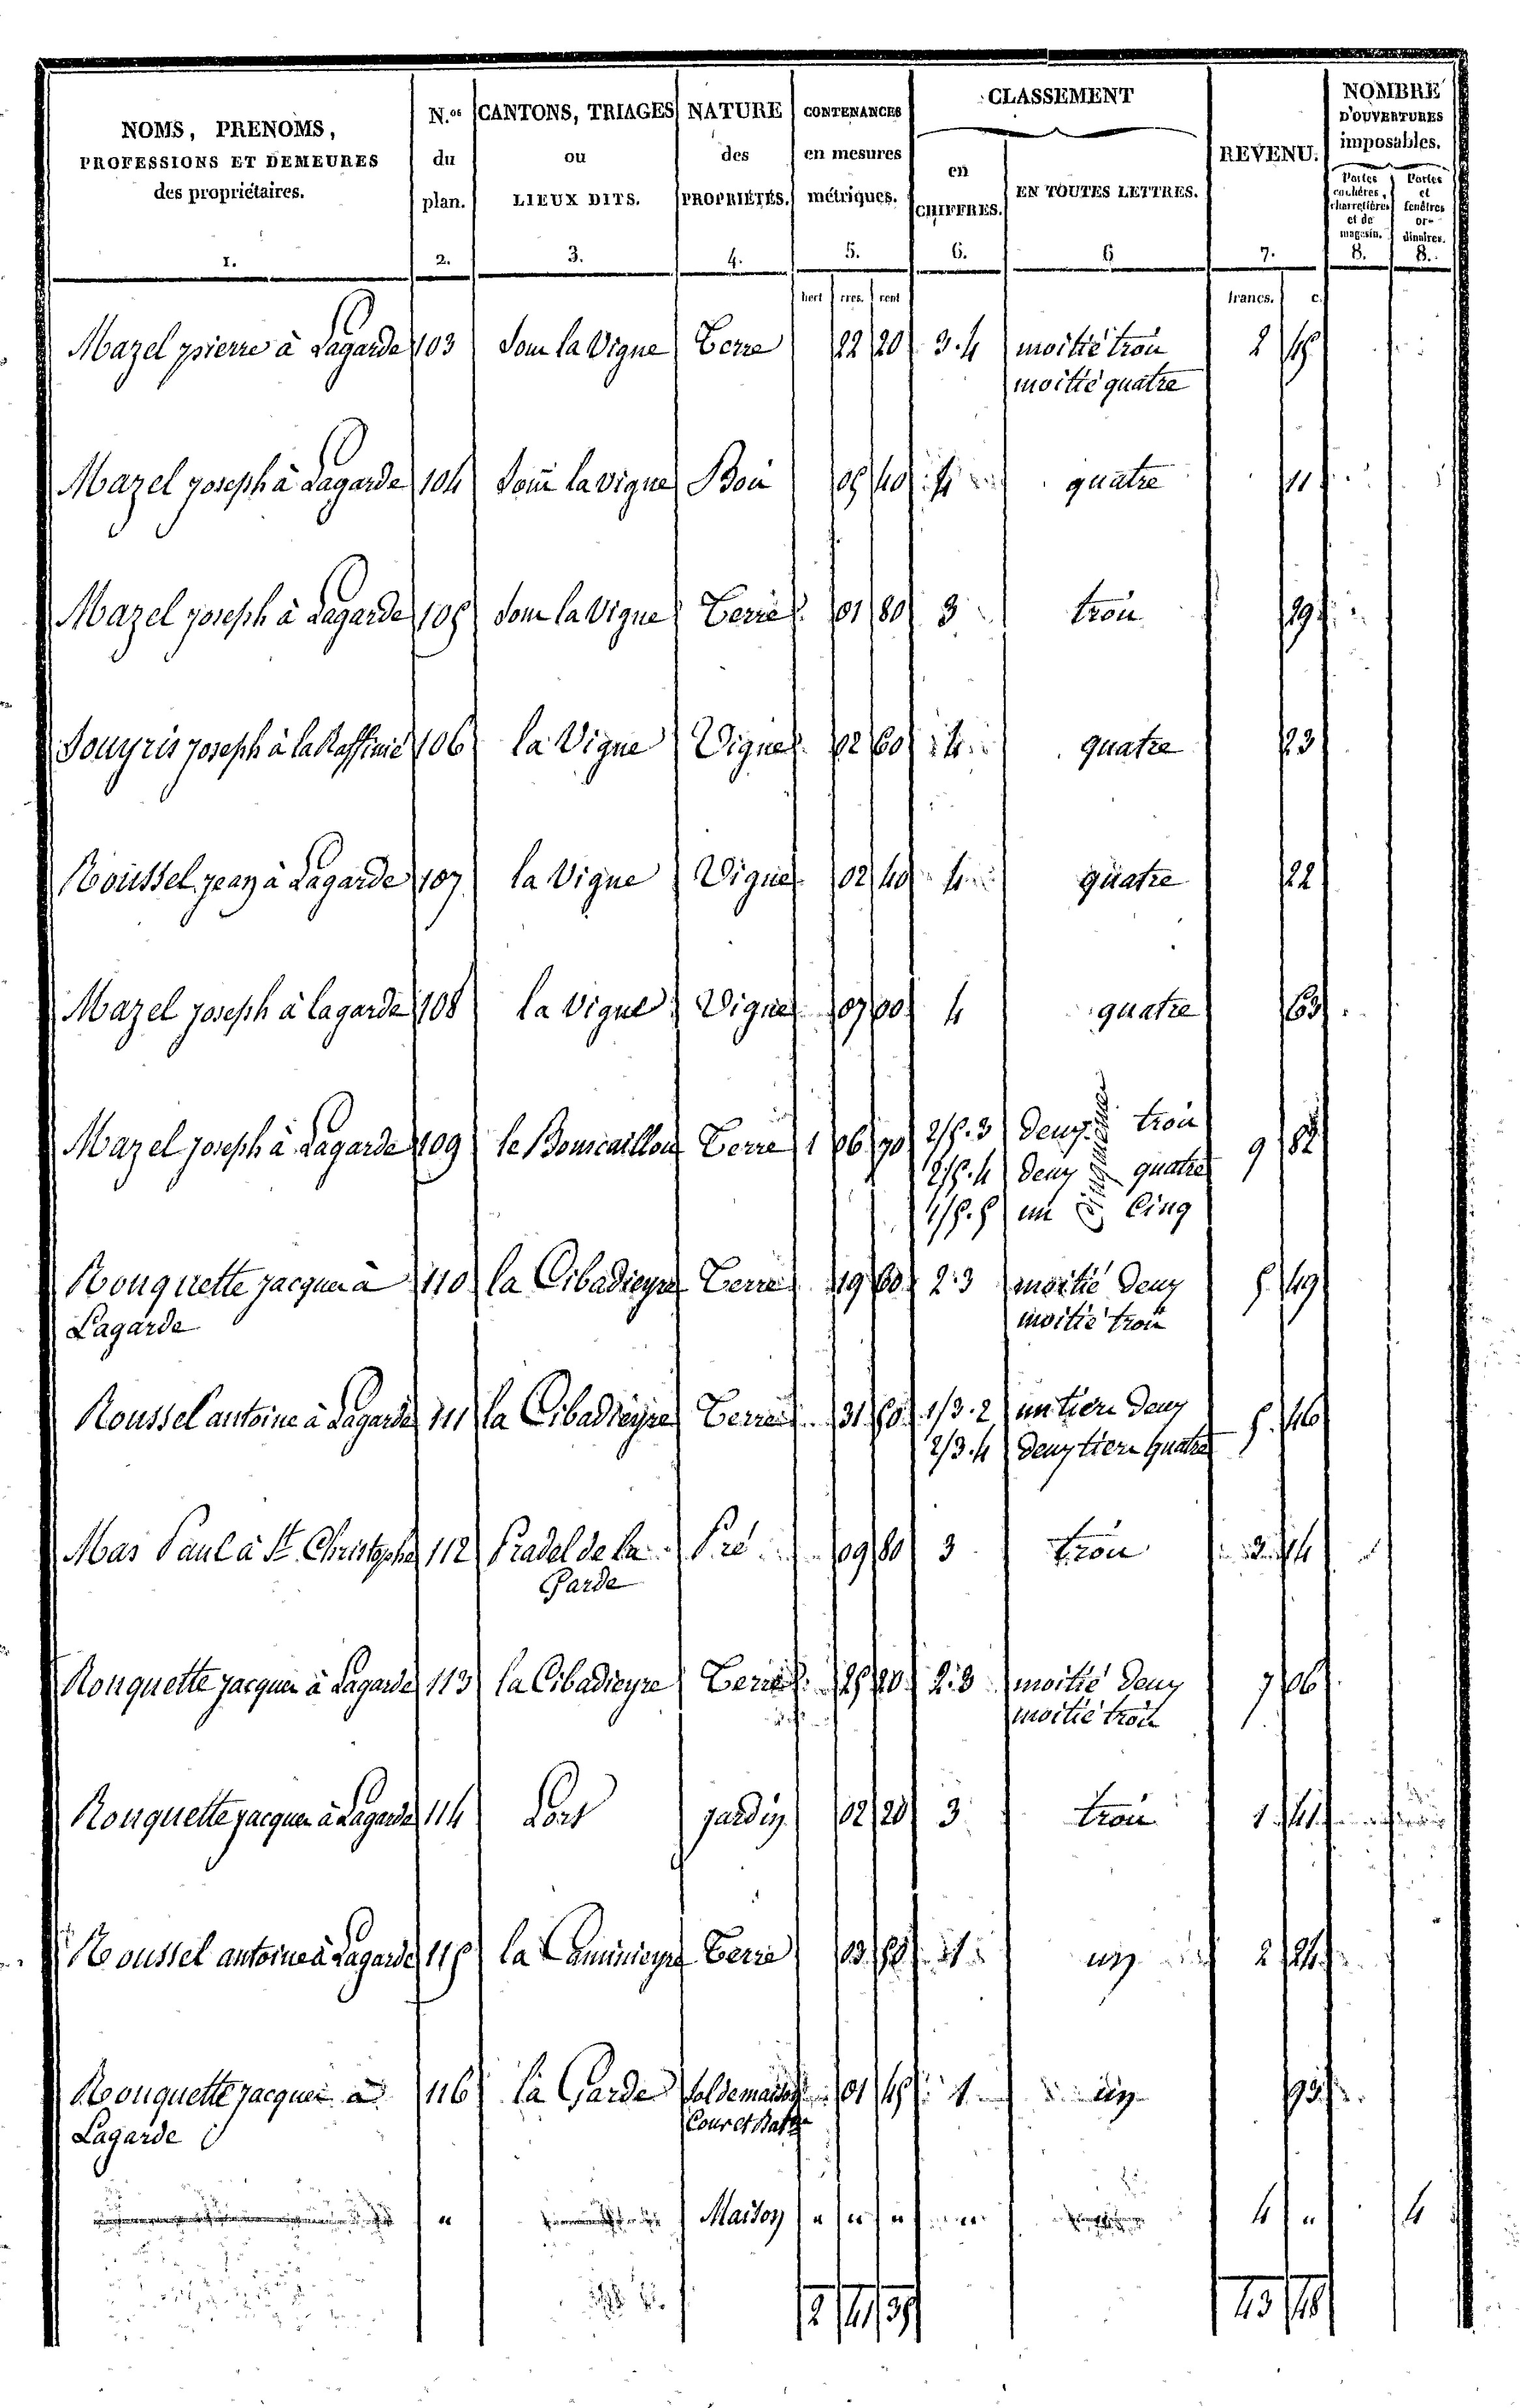 NOMS, PRENOMS, PROFESSIONS ET DEMEURES des propriétaires. 1.
N.os du plan. 2.
CANTONS, TRIAGES ou LIEUX DITS. 3.
NATURE des PROPRIÉTÉS. 4.
CONTENANCES en mesures métriques. 5.
CLASSEMENT
en CHIFFRES. 6.
EN TOUTES LETTRES. 6
REVENU. 7.
NOMBRE D'OUVERTURES imposables.
Portes cochères, charretières et de magasin. 8.
Portes et fenêtres ordinaires. 8.
hect ares. cent francs. c.
Mazel pierre à Lagarde 103 Sous la Vigne Terre 22 20 3.4 moitié trois 2
moitié quatre
Mazel joseph à Lagarde 104 Sous la vigne Bois 05 40 4 quatre 11
Mazel joseph à Lagarde 105 Sous la Vigne Terre 01 80 3 trois 29
Souyris joseph à la Raffinie 106 la Vigne Vigne 02 60 4 quatre 23
Roussel jean à Lagarde 107 la Vigne Vigne 02 40 4 quatre 22
Mazel joseph à lagarde 108 la Vigne Vigne 07 00 4 quatre 63
Mazel joseph à Lagarde 109 le Bouscaillou Terre 1 06 70 2/5.3 deux cinquièmes trois 9 82
2/5.4 deux quatre
1/5.5 un cinq
Rouquette jacques à 110 la Cibadieyre Terre 19 60 2.3 moitié deux 5 49
Lagarde moitié trois
Roussel antoine à Lagarde 111 la Cibadieyre Terre 31 50 1/3.2 un tiers deux 5 46
2/3.4 deux tiers quatre
Mas Paul à St. Christophe 112 Pradel de la Pré 09 80 3 trois 2
Garde
Rouquette jacques à Lagarde 113 la Cibadieyre Terre 25 20 2.3 moitié deux 7 06
moitié trois
Rouquette jacques à Lagarde 114 Lort jardin 02 20 3 trois 1 41
Roussel antoine à Lagarde 115 la Caminieyre Terre 03 50 1 un 2 24
Rouquette jacques à 116 la Garde Sol de maison 01 45 1 un 93
Lagarde Cour et Bat
" Maison " " " 4 " 4
2 41 35 43 48